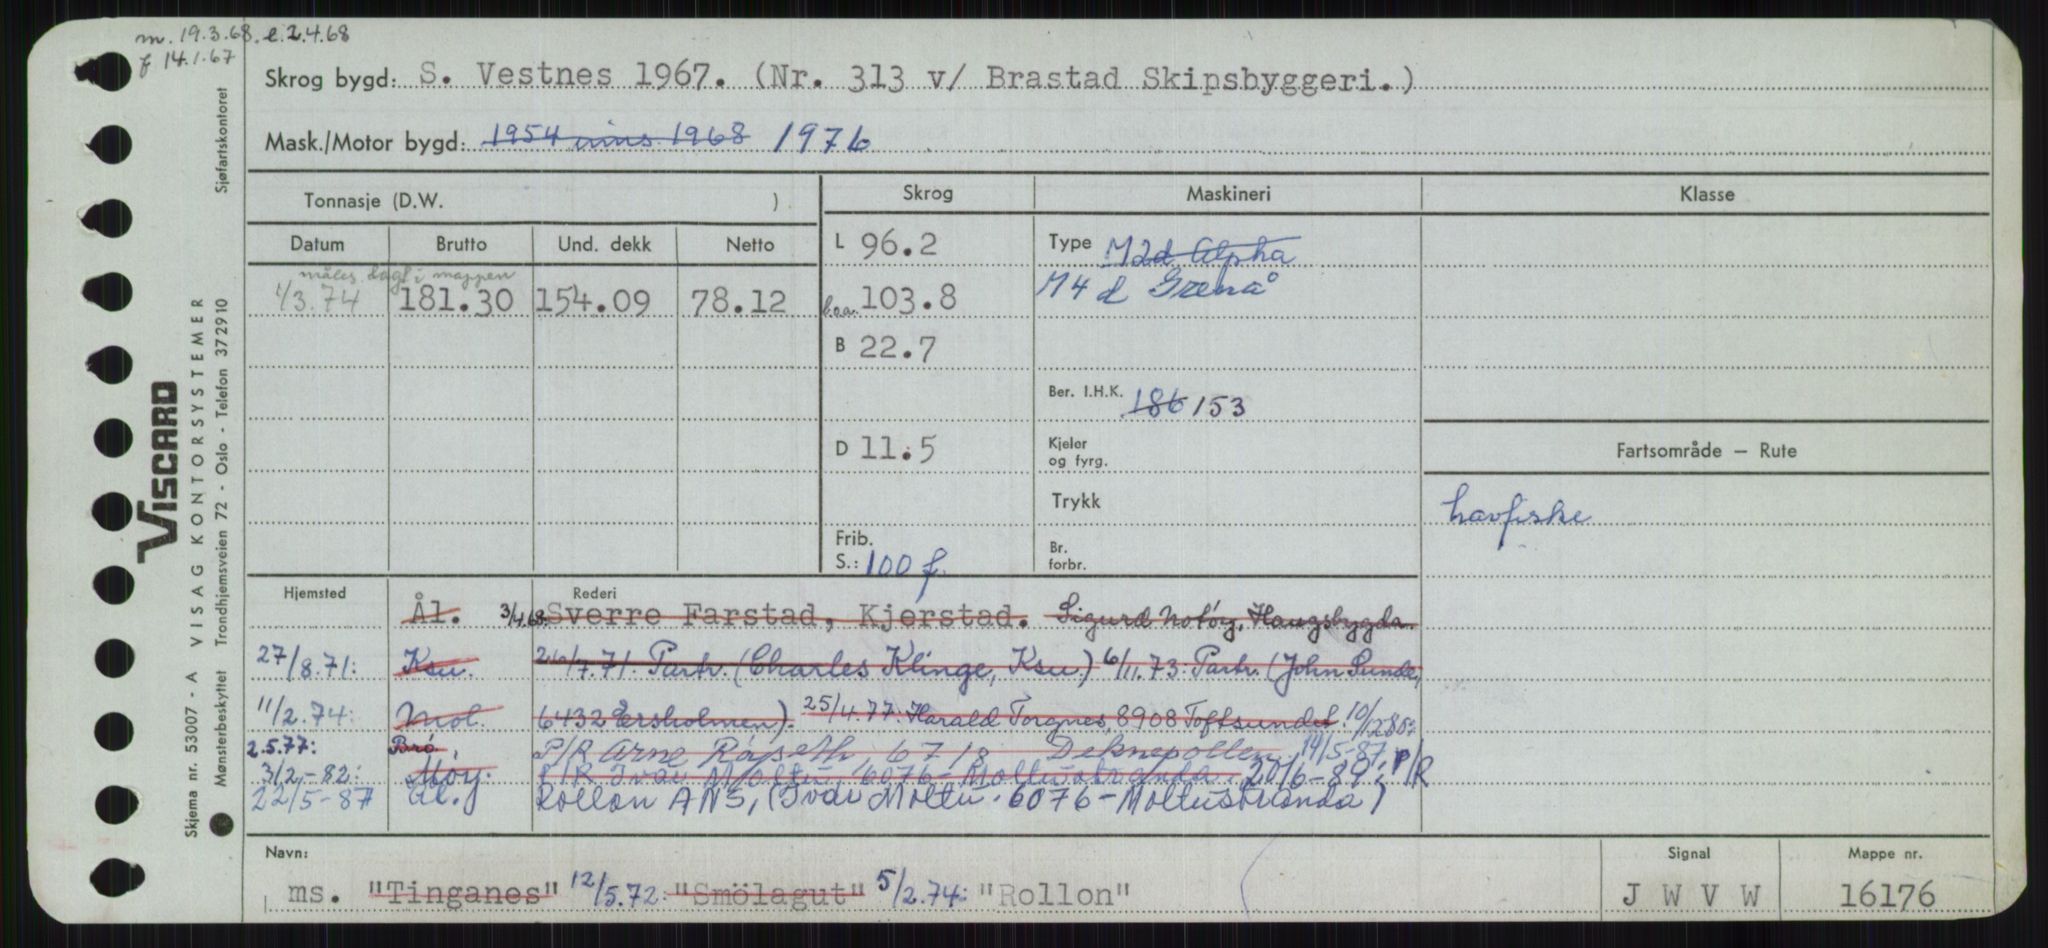 m. 19.3.68. e. 2.4.68
f 14.1.67
Skrog bygd: S. Vestnes 1967. (Nr. 313 v/ Brastad Skipsbyggeri.)
Mask./Motor bygd: 1954 inns 1968 1976
Tonnasje (D.W. )
Skrog
Maskineri
Klasse
Datum Brutto Und. dekk Netto
måles dagl i mappen
1/3.74 181.30 154.09 78.12
L 96.2
Loa. 103.8
B 22.7
D 11.5
Frib.
S.: 100 f.
Type M2d Alpha
M4 d Grenå
Ber. I.H.K. 186 153
Kjeler
og fyrg.
Trykk
Br.
forbr.
Fartsområde — Rute
havfiske
Hjemsted Rederi
Ål. 3/4.68. Sverre Farstad, Kjerstad. Sigurd Notöy, Haugsbygda.
27/8.71: Ksu. 26/7.71: Partr. (Charles Klinge, Ksu.) 6/11.73: Partr. (John Sunde,
11/2.74: Mol. 6432 Ersholmen). 25/4.77: Harald Torgnes, 8908 Toftsundet. 10/12
2.5.77: Brö. P/R Arne Råseth 6718 Deknepollen. 14/5-87: P/R
3/2-82: Måøy. P/R Ivar Moltu, 6076-Moltustranda. 20/6-89: P/R
22/5-87 Ål. Rollon ANS, (Ivar Moltu. 6076-Moltustranda)
Navn:
ms. "Tinganes" 12/5.72: "Smölagut" 5/2.74: "Rollon"
Signal
J W V W
Mappe nr.
16176
VISCARD
VISAG KONTORSYSTEMER
Skjema nr. 53007 - A
Mønsterbeskyttet Trondhjemsveien 72 - Oslo - Telefon 372910 Sjøfartskontoret